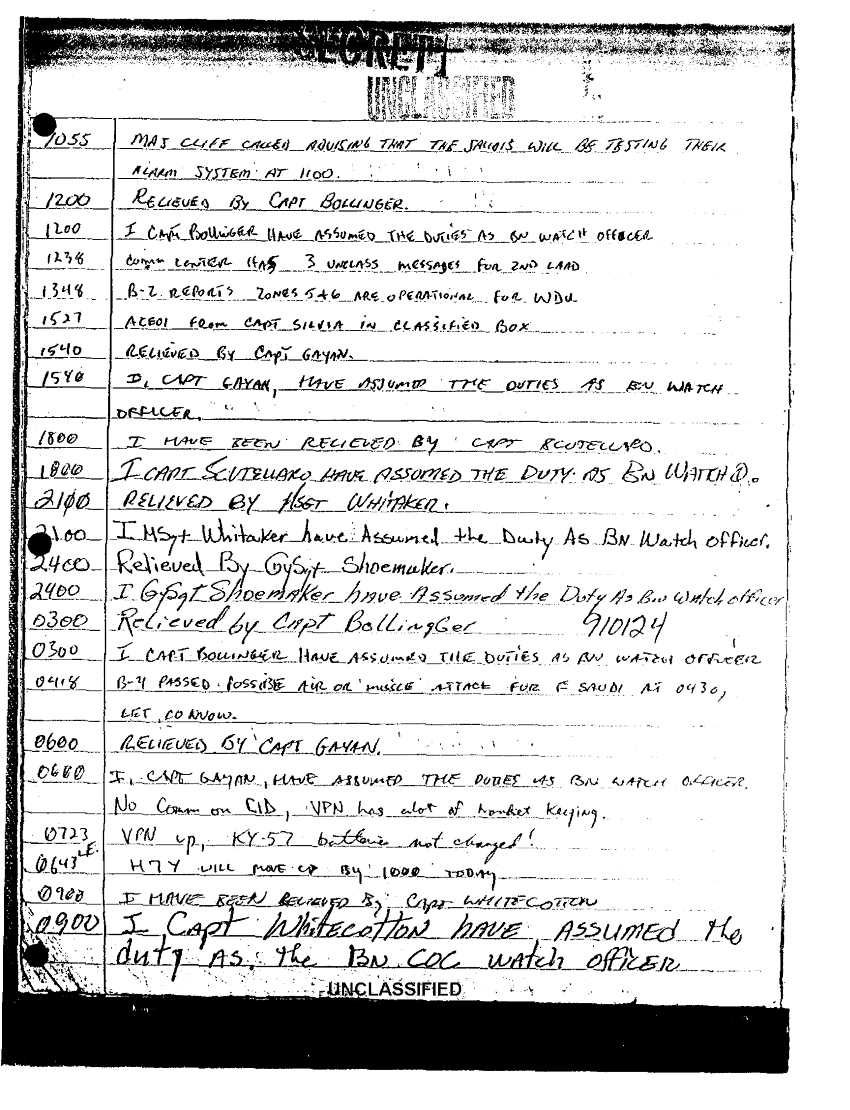 SECRET
UNCLASSIFIED
1055 MAJ CLIFF CALLED ADVISING THAT THE SAUDIS WILL BE TESTING THEIR
ALARM SYSTEM AT 1100.
1200 RELIEVED BY CAPT BOLLINGER.
1200 I CAPT BOLLINGER HAVE ASSUMED THE DUTIES AS BN WATCH OFFICER
1238 COMM CENTER HAS 3 UNCLASS MESSAGES FOR 2ND LAAD
1348 B-2 REPORTS ZONES 5+6 ARE OPERATIONAL FOR WDU
1527 ACEOI FROM CAPT SILVIA IN CLASSIFIED BOX
1540 RELIEVED BY CAPT GAYAN.
1540 I, CAPT GAYAN, HAVE ASSUMED THE DUTIES AS BN WATCH
OFFICER.
1800 I HAVE BEEN RELIEVED BY CAPT SCUTELLARO.
1800 I CAPT SCUTELLARO HAVE ASSUMED THE DUTY AS BN WATCH O.
2100 RELIEVED BY MSGT WHITAKER.
2100 I MSgt Whitaker have Assumed the Duty As BN Watch officer.
2400 Relieved By GySgt Shoemaker.
2400 I GySgt Shoemaker have Assumed the Duty As BN Watch officer
0300 Relieved by Capt BollingGer 910124
0300 I CAPT BOLLINGER HAVE ASSUMED THE DUTIES AS BN WATCH OFFICER
0418 B-4 PASSED POSSIBLE AIR OR MISSLE ATTACK FOR E SAUDI AT 0430,
0600 RELIEVED BY CAPT GAYAN.
0600 I, CAPT GAYAN, HAVE ASSUMED THE DUTIES AS BN WATCH OFFICER.
No Comm on CID, VPN has alot of Keying.
0723 VPN up, KY-57 batteries not changed!
0643 H7Y WILL MOVE UP BY 1000 TODAY
0900 I HAVE BEEN RELIEVED By CAPT WHITECOTTON
0900 I Capt Whitecotton HAVE ASSUMED the
duty AS the BN COC WATCH OFFICER
UNCLASSIFIED